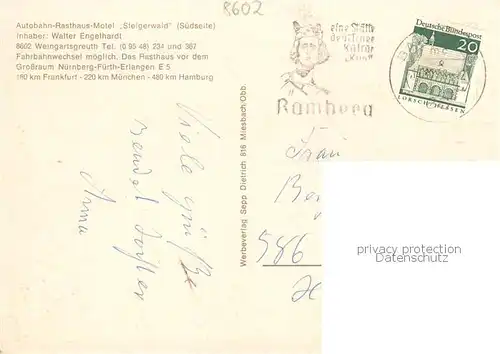 8602
Autobahn-Rasthaus-Motel „Steigerwald" (Südseite)
Inhaber: Walter Engelhardt
8602 Weingartsgreuth Tel. (0 95 48) 234 und 367
Fahrbahnwechsel möglich. Das Rasthaus vor dem
Großraum Nürnberg-Fürth-Erlangen E 5
180 km Frankfurt - 220 km München - 480 km Hamburg
eine Stätte
deutscher
Kultur
Bamberg
Deutsche Bundespost
20
LORSCH/HESSEN
Werbeverlag Sepp Dietrich 816 Miesbach/Obb.
Viele Grüße
Anna
Frau
586
privacy protection
Datenschutz